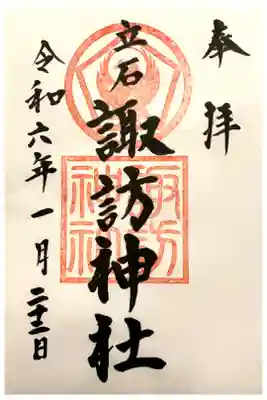 奉拝
立石
諏訪神社
諏訪
神社
令和六年一月